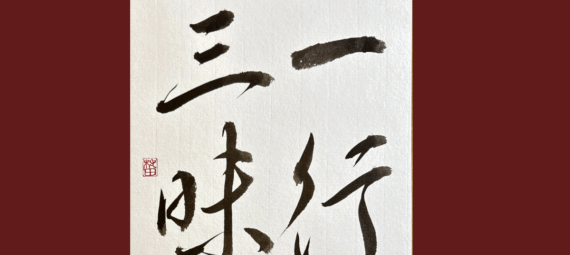 一行
三昧